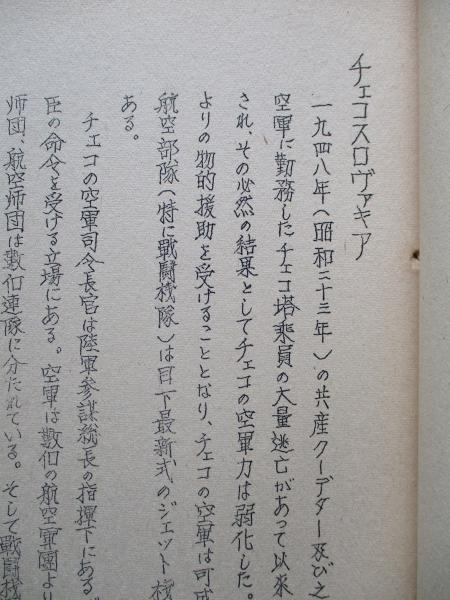 チェコスロヴァキア
一九四八年（昭和二十三年）の共産クーデター及び之
空軍に勤務したチェコ塔乗員の大量逃亡があって以来
され、その必然の結果としてチェコの空軍力は弱化した。
よりの物的援助を受けることとなり、チェコの空軍は可成
航空部隊（特に戰闘機隊）は目下最新式のジェット機
ある。
チェコの空軍司令長官は陸軍参謀総長の指揮下にある
臣の命令を受ける立場にある。空軍は数個の航空軍團より
师団、航空师団は数個連隊に分たれている。そして戰闘機